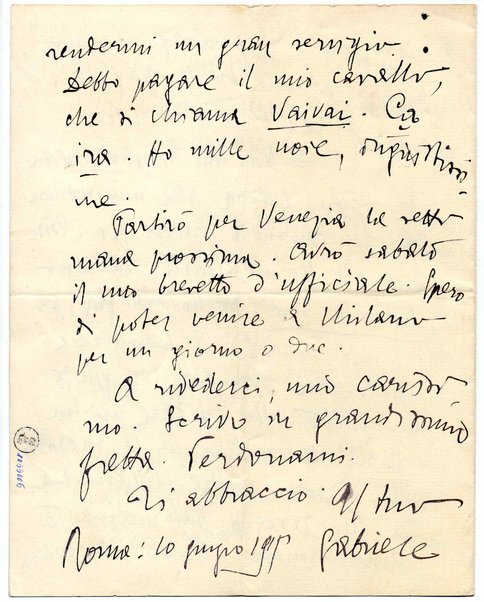 rendermi un gran servigio.
Debbo pagare il mio cavallo,
che si chiama Vaivai. Ça
ira. Ho mille noie, ingiustissi
me.
Partirò per Venezia la setti
mana prossima. Avrò sabato
il mio brevetto d'ufficiale. Spero
di poter venire a Milano
per un giorno o due.
A rivederci, mio carissi
mo. Scrivo in grandissima
fretta. Perdonami.
Ti abbraccio. Il tuo
Gabriele
Roma: 10 giugno 1915